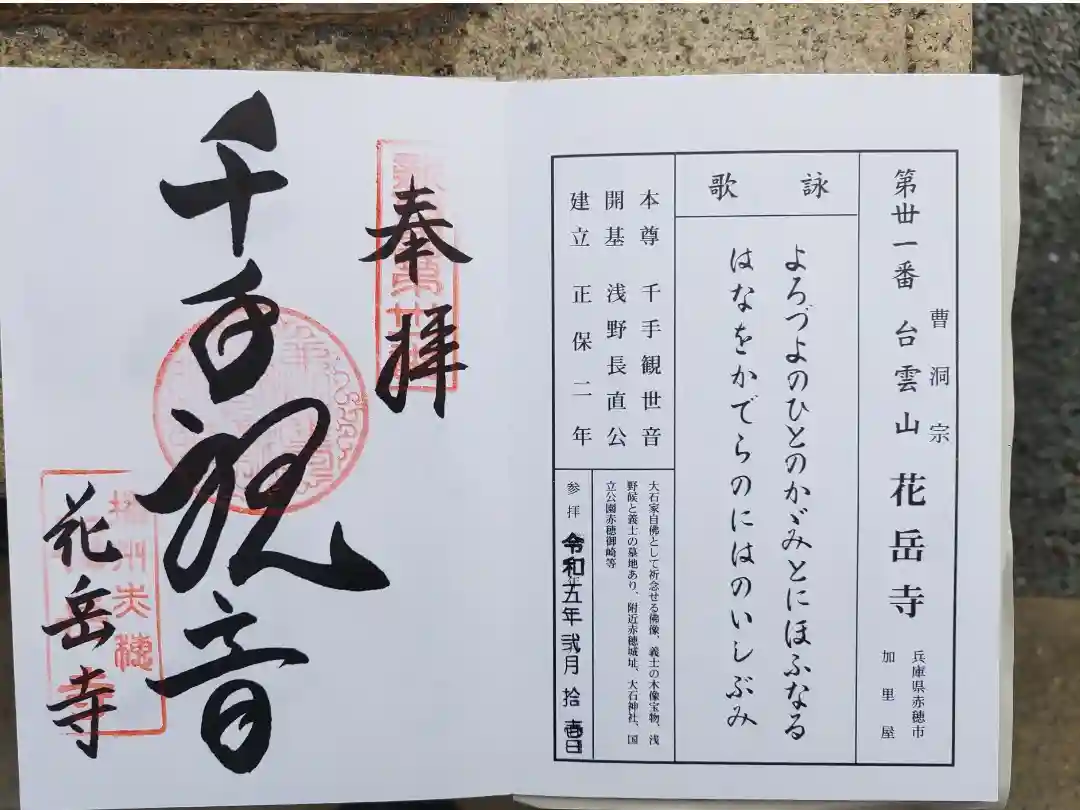 曹洞宗
第丗一番 台雲山 花岳寺
兵庫県赤穂市
加里屋
詠歌
よろづよのひとのかゞみとにほふなる
はなをかでらのにはのいしぶみ
本尊 千手観世音
開基 浅野長直公
建立 正保二年
大石家自佛として祈念せる佛像、義士の木像宝物、浅
野候と義士の墓地あり、附近赤穂城址、大石神社、国
立公園赤穂御崎等
参拝 令和五年 弐月 拾壹日
奉拝
千手観音
花岳寺
播州赤穂